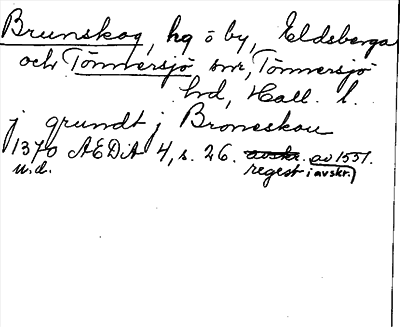 Brunskog, hg o by, Eldsberga
och Tönnersjö snr, Tönnersjö
hd, Hall. l.
j grundt j Broneskou
1370 AEDA 4, s. 26. avskr. av 1551.
u.d. regest i avskr.)